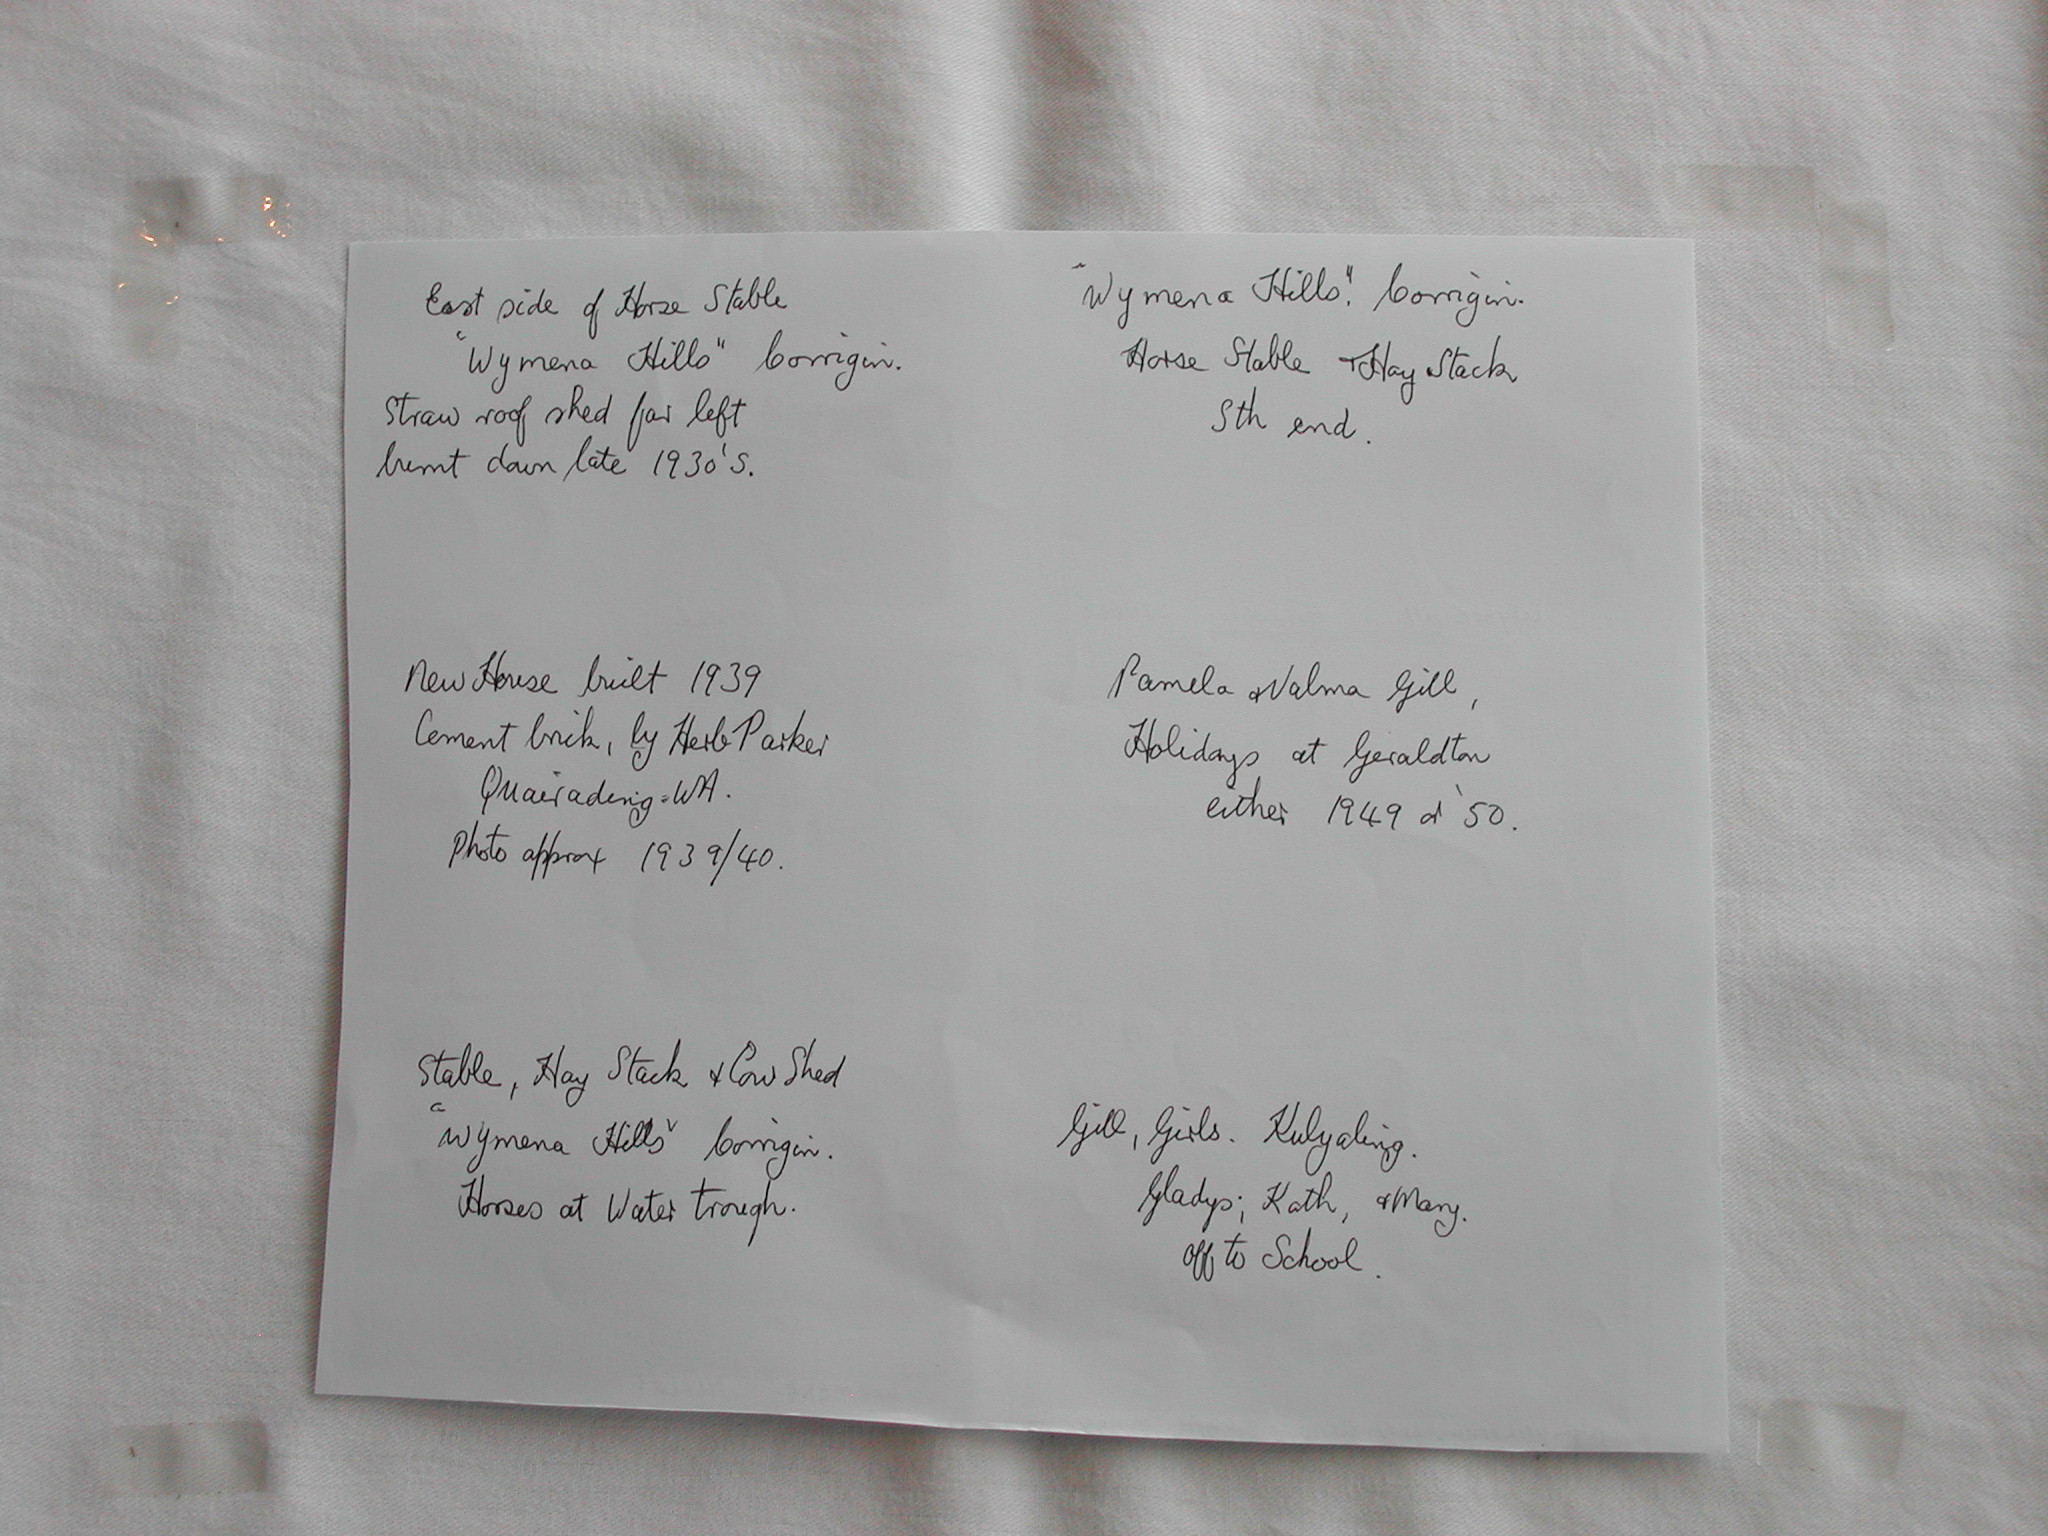 East side of Horse Stable
"Wymena Hills" Corrigin.
Straw roof shed far left
burnt down late 1930's.
"Wymena Hills". Corrigin.
Horse Stable & Hay Stack
Sth end.
New House built 1939
Cement brick, by Herb Parker
Quairading-WA.
Photo approx 1939/40.
Pamela & Valma Gill,
Holidays at Geraldton
either 1949 or '50.
Stable, Hay Stack & Cow Shed
"Wymena Hills" Corrigin.
Horses at Water trough.
Gill, Girls. Kulyaling.
Gladys; Kath, & Mary.
off to School.